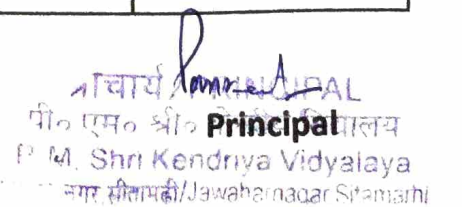 प्राचार्य / PRINCIPAL
पी० एम० श्री० Principal विद्यालय
P. M. Shri Kendriya Vidyalaya
नगर सीतामढ़ी/Jawaharnagar Sitamarhi